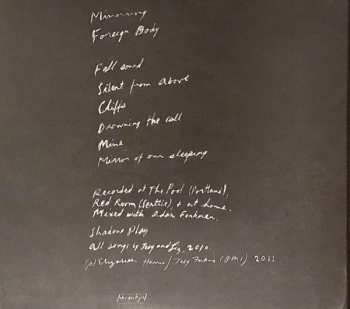 Mirroring
Foreign Body
Fall sand
Silent from above
Cliffs
Drowning the call
Mine
Mirror of our sleeping
Recorded at The Pool (Portland),
Red Room (Seattle), + at home.
Mixed with Adam Forkner.
Shadow Play
All songs by Jesy and Liz, 2010.
Harris / Jesy (BMI) 2011